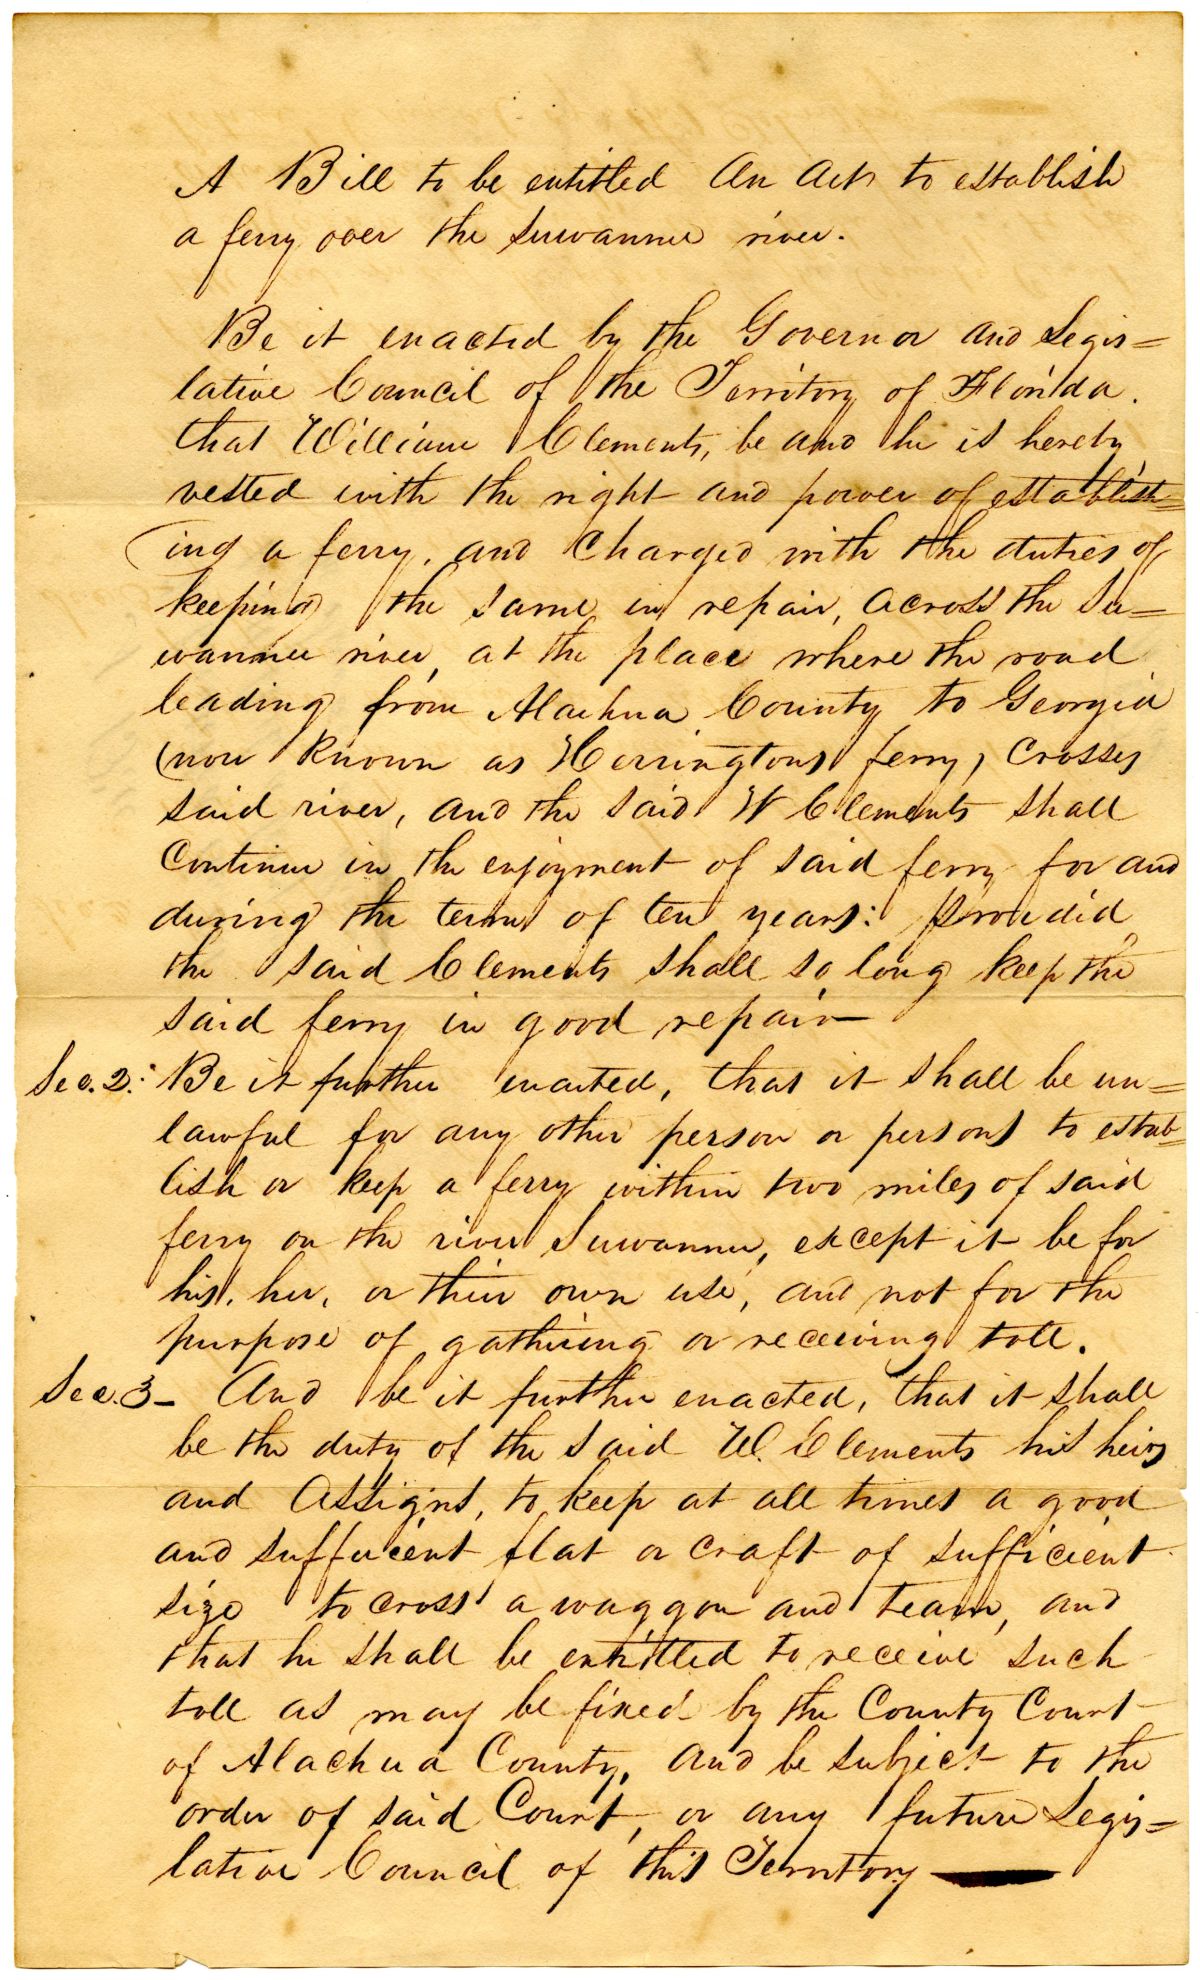 A Bill to be entitled An Act to establish
a ferry over the Suwannee river.
Be it enacted by the Governor and Legis=
lative Council of the Territory of Florida.
that William Clements, be and he is hereby
vested with the right and power of establish=
ing a ferry, and charged with the duties of
keeping the same in repair, across the Su=
wannee river, at the place where the road
leading from Alachua County to Georgia
(now known as Herringtons ferry) crosses
said river, and the said W Clements shall
continue in the enjoyment of said ferry for and
during the term of ten years: Provided,
the said Clements shall so long keep the
said ferry in good repair—
Sec. 2: Be it further enacted, that it shall be un=
lawful for any other person or persons to estab=
lish or keep a ferry within two miles of said
ferry on the river Suwannee, except it be for
his, her, or their own use, and not for the
purpose of gathering or receiving toll.
Sec. 3— And be it further enacted, that it shall
be the duty of the said W. Clements his heirs
and Assigns, to keep at all times a good
and suffucient flat or craft of sufficient
size to cross a waggon and team, and
that he shall be entitled to receive such
toll as may be fixed by the County Court
of Alachua County, and be subject to the
order of said Court, or any future Legis=
lative Council of this Territory —